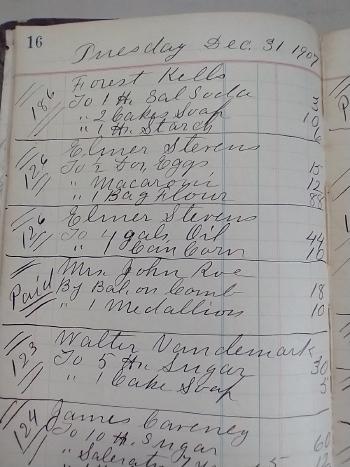 16
Tuesday Dec. 31 1907
186
Forest Kells
To 1 #. Sal Soda 3
" 2 Cakes Soap 10
" 1 #. Starch 6
126
Elmer Stevens
To 2 Doz. Eggs
" Macaroni 12
" 1 Bag Flour 88
126
Elmer Stevens
To 4 gals Oil 44
" 1 Can Corn 10
Paid
Mrs. John Roe
By Bal. on Comb 18
" 1 Medallion 10
123
Walter Vandemark
To 5 #. Sugar 30
" 1 Cake Soap 5
124
James Caveney
To 10 #. Sugar 60
" Saleratus